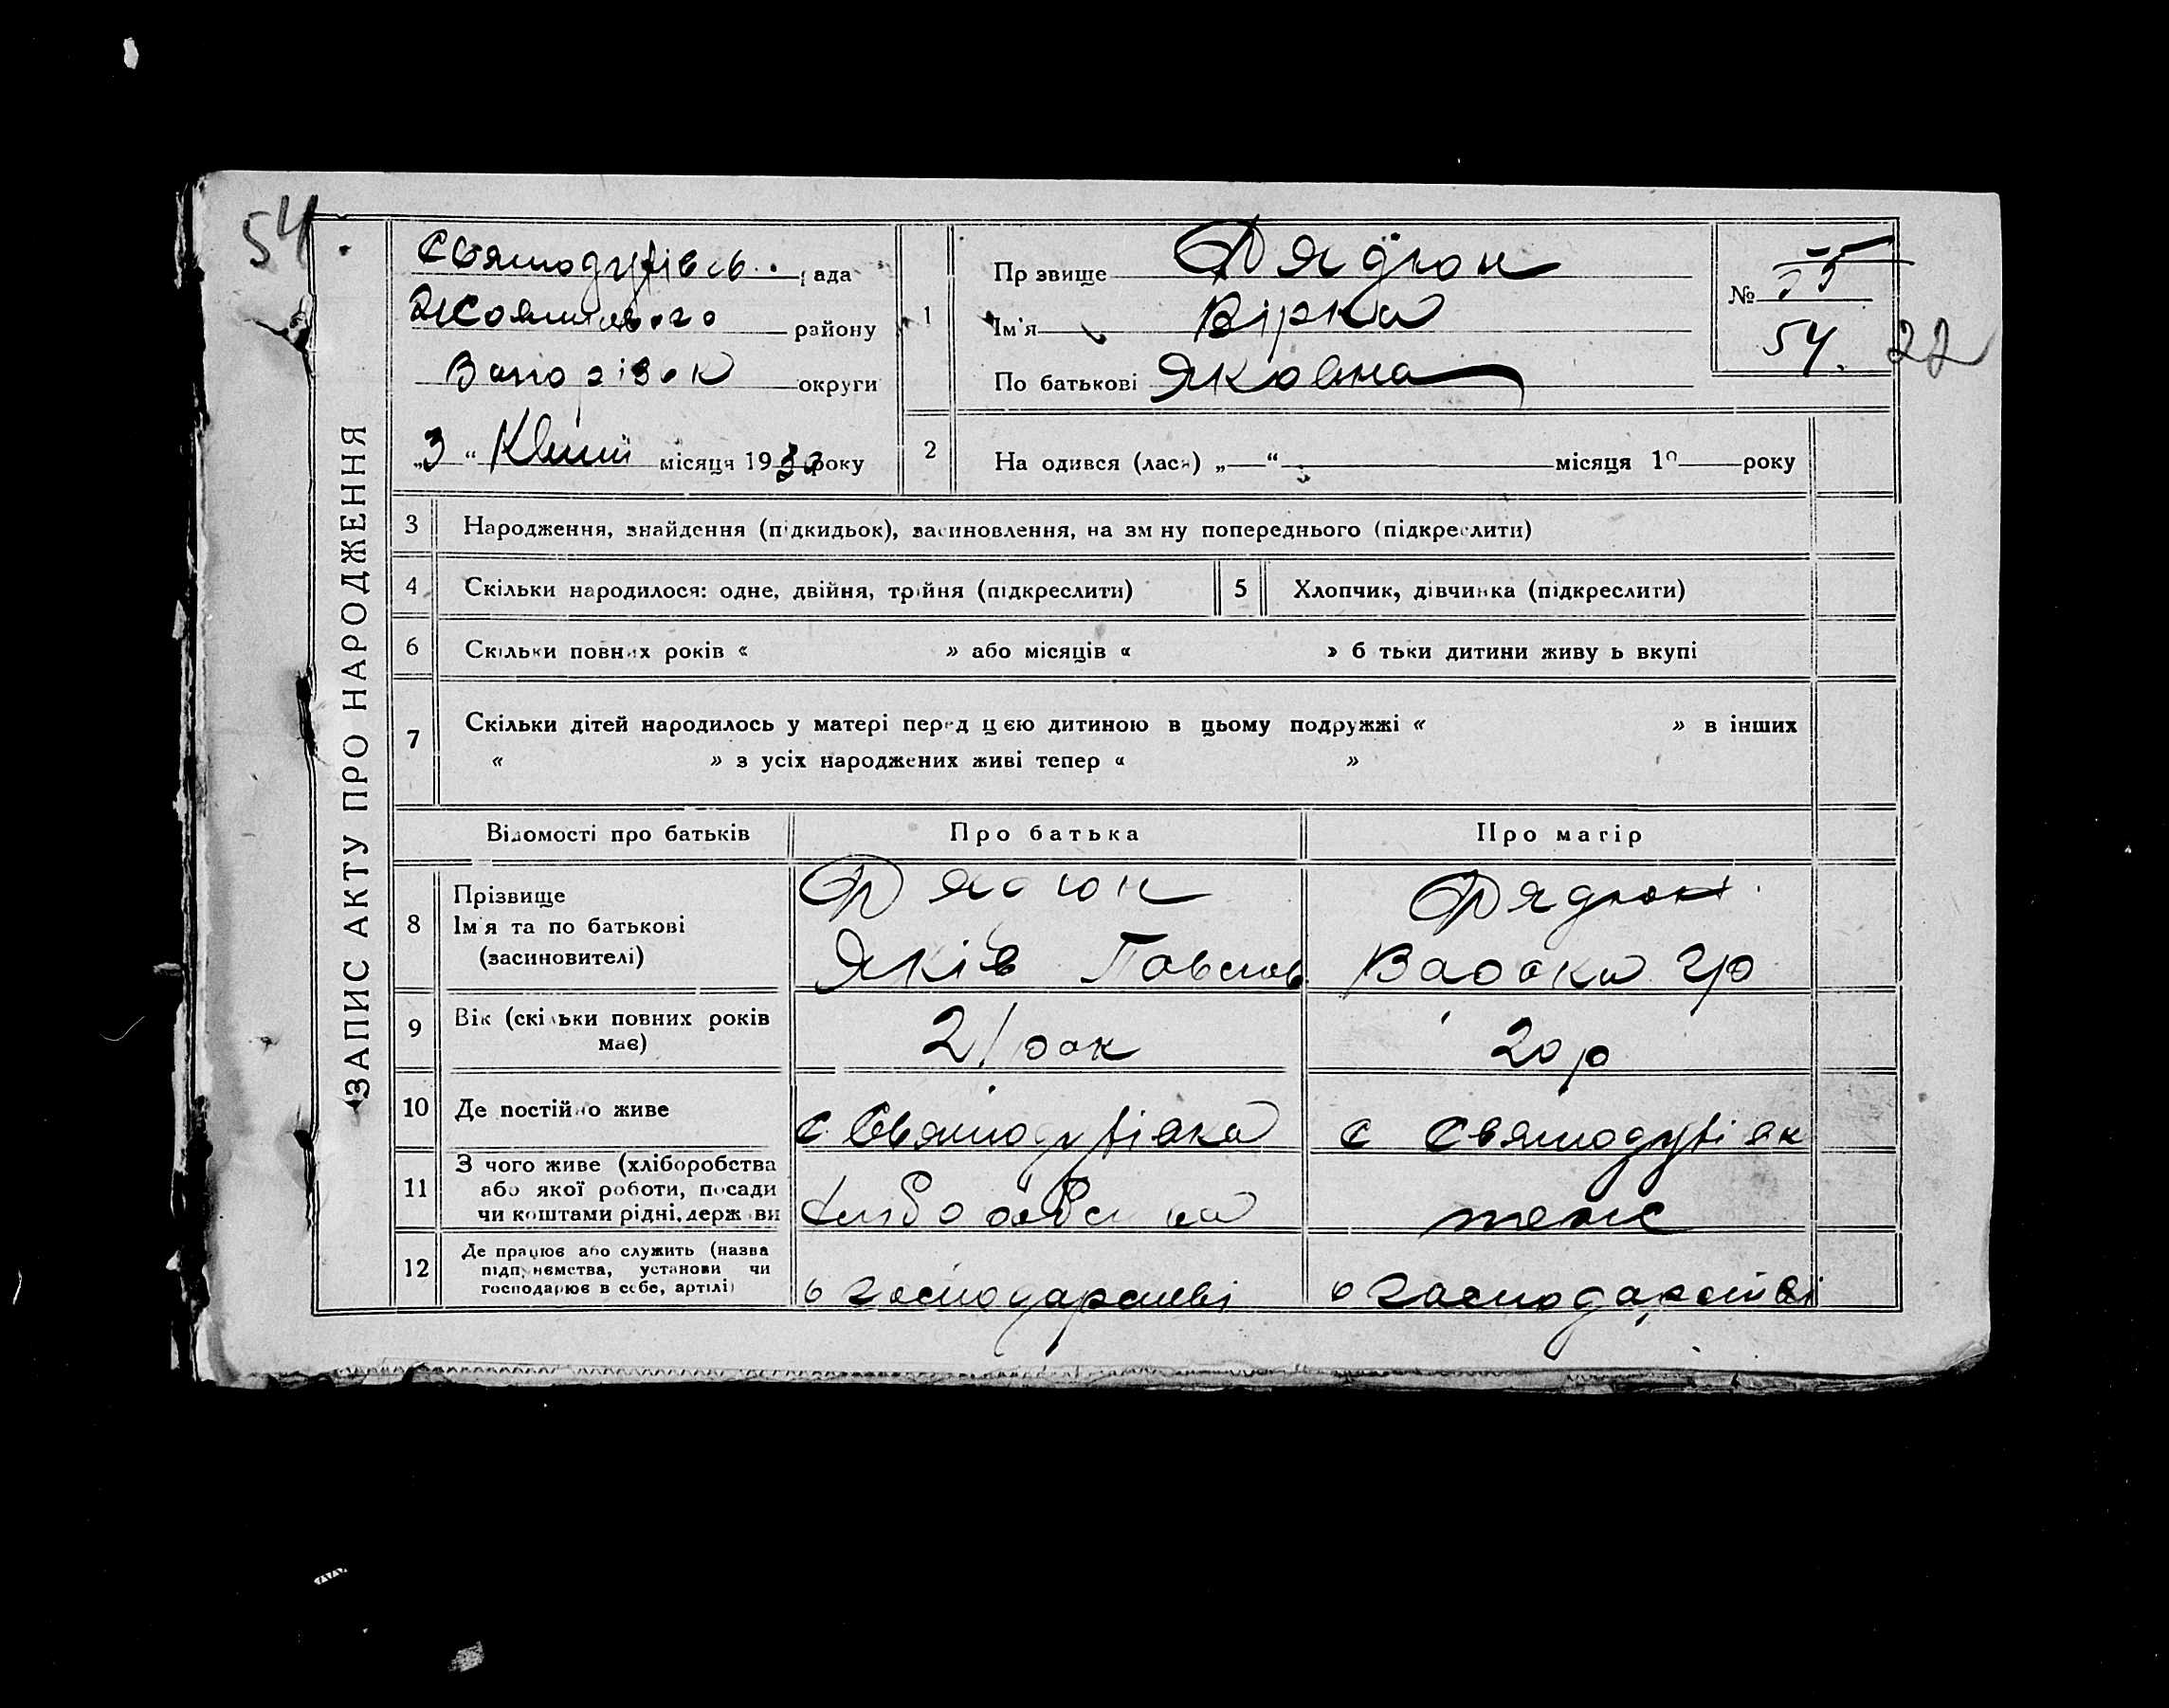 54
Святодухівсь. рада
району
округи
"3" Квітн місяця 1930 року
ЗАПИС АКТУ ПРО НАРОДЖЕННЯ
1
Пр звище Фядюн
Ім'я Вірка
По батькові Яковна
№ 55
54.
22
2
На одився (лася) „—“ місяця 1 року
3 Народження, знайдення (підкидьок), засиновлення, на зм ну попереднього (підкреслити)
4 Скільки народилося: одне, двійня, трійня (підкреслити)
5 Хлопчик, дівчинка (підкреслити)
6 Скільки повних років « » або місяців « » б тьки дитини живу ь вкупі
7 Скільки дітей народилось у матері перед цією дитиною в цьому подружжі « » в інших
« » з усіх народжених живі тепер « »
Відомості про батьків Про батька Про матір
8 Прізвище
Ім'я та по батькові
(засиновителі)
Фядюн
Яків Павлов
Фядюн
Варка Гр
9 Вік (скільки повних років
має)
21 рок
20 р
10 Де постійно живе
с. Святодухівка
с Святодухівк
11 З чого живе (хліборобства
або якої роботи, посади
чи коштами рідні, держ ви
теж
12 Де працює або служить (назва
підпр немства, установи чи
господарює в себе, артілі)
в господарстві
в господарстві